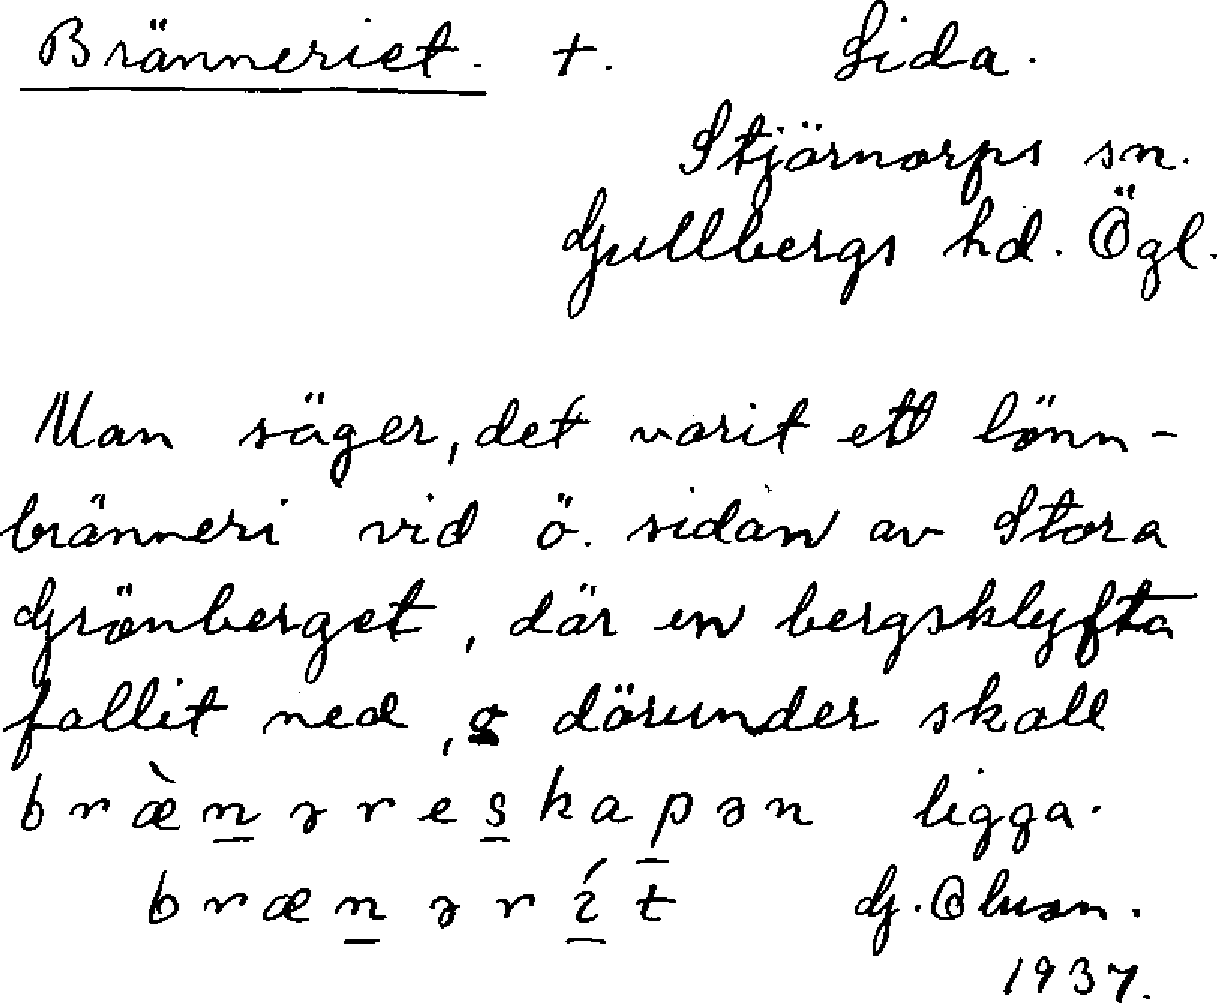 Bränneriet. +. Lida.
Stjärnorps sn.
Gullbergs hd. Ögl.
Man säger, det varit ett lönn-
bränneri vid ö. sidan av Stora
Grönberget, där en bergsklyfta
fallit ned, o därunder skall
bræ̀n̲əres̲kap̲ən ligga.
bræn̲ərí̲t G. Olsson.
1937.